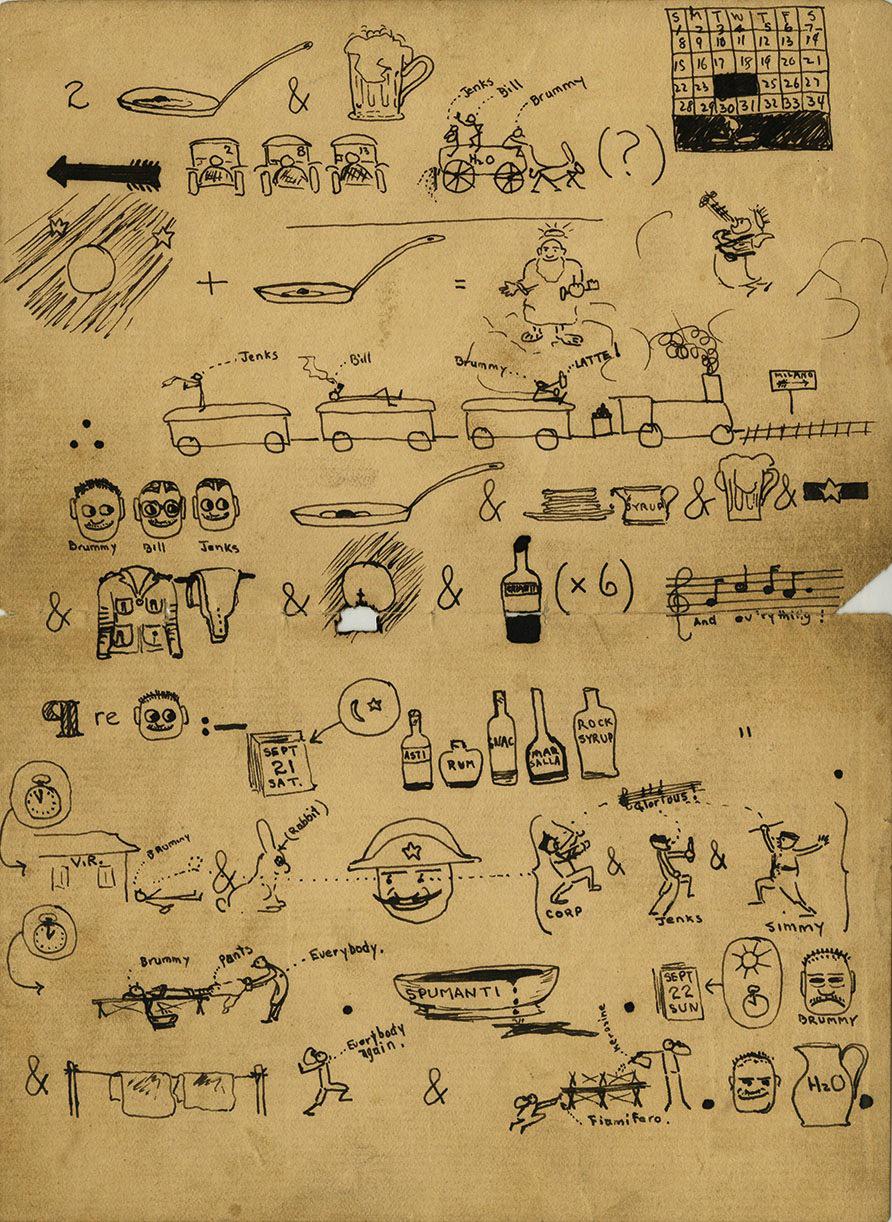 S M T W T F S
1 2 3 4 5 6 7
8 9 10 11 12 13 14
15 16 17 18 19 20 21
22 23 25 26 27
28 29 30 31 32 33 34
2 &
Jenks Bill Brummy
2 8 13 H2O (?)
+ =
Jenks Bill Brummy LATTE!
MILANO
& SYRUP & &
Brummy Bill Jenks
& & & CHIANTI (x 6)
And ev'rything!
¶ re :-
SEPT 21 SAT.
ASTI RUM GNAC MAR SALLA ROCK SYRUP "
Glorious!
V.R. BRUMMY & (Rabbit) & &
CORP Jenks SIMMY
Brummy Pants Everybody.
SPUMANTI
SEPT 22 SUN
BRUMMY
& Everybody again. & Kerosine H2O
Fiamifero.